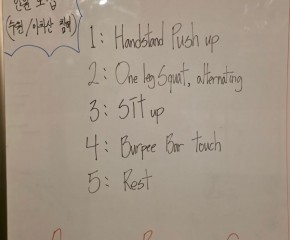 인원 모집
(수원/아차산 참여)
1: Handstand Push up
2: One leg Squat, alternating
3: Sit up
4: Burpee Bar touch
5: Rest